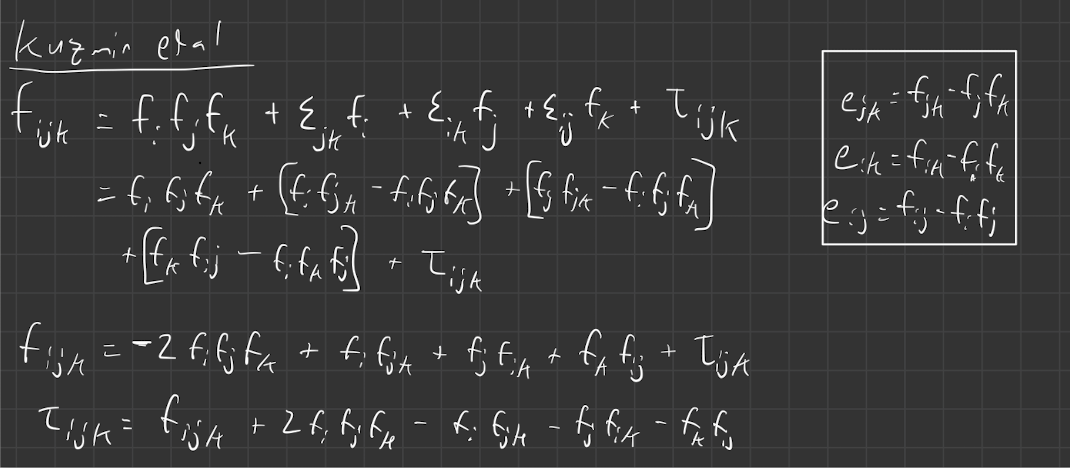 Kuzmin et al
f_ijk = f_i f_j f_k + ε_jk f_i + ε_ik f_j + ε_ij f_k + τ_ijk
= f_i f_j f_k + [f_i f_jk - f_i f_j f_k] + [f_j f_ik - f_i f_j f_k]
+ [f_k f_ij - f_i f_k f_j] + τ_ijk
f_ijk = -2 f_i f_j f_k + f_i f_jk + f_j f_ik + f_k f_ij + τ_ijk
τ_ijk = f_ijk + 2 f_i f_j f_k - f_i f_jk - f_j f_ik - f_k f_ij
e_jk = f_jk - f_j f_k
e_ik = f_ik - f_i f_k
e_ij = f_ij - f_i f_j